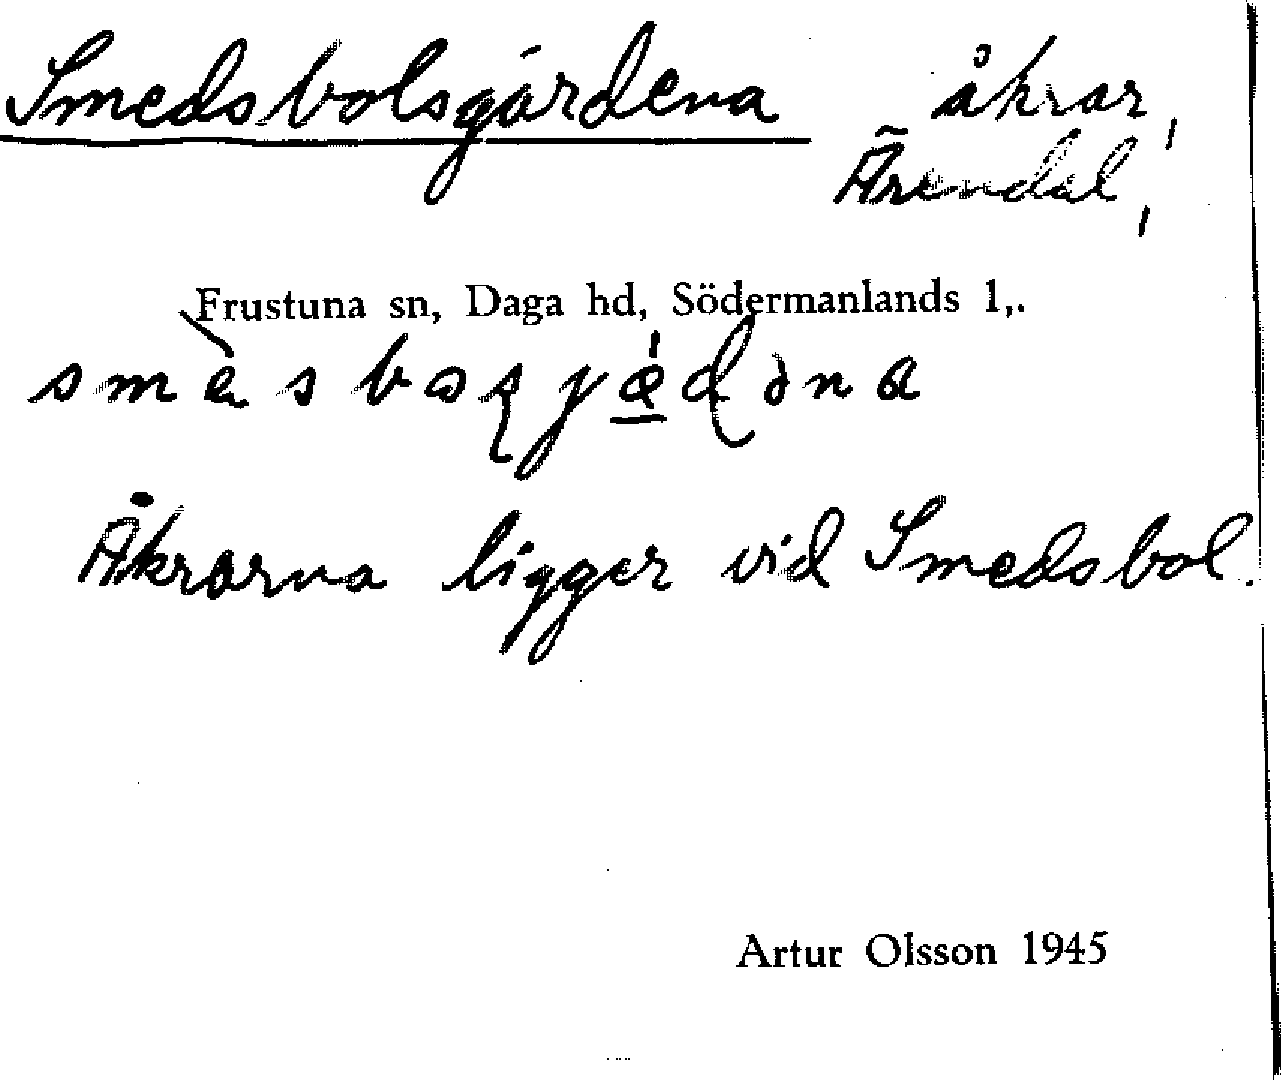 Smedsbolsgärdena åkrar,
Ärendal,
Frustuna sn, Daga hd, Södermanlands l,.
Åkrarna ligger vid Smedsbol.
Artur Olsson 1945